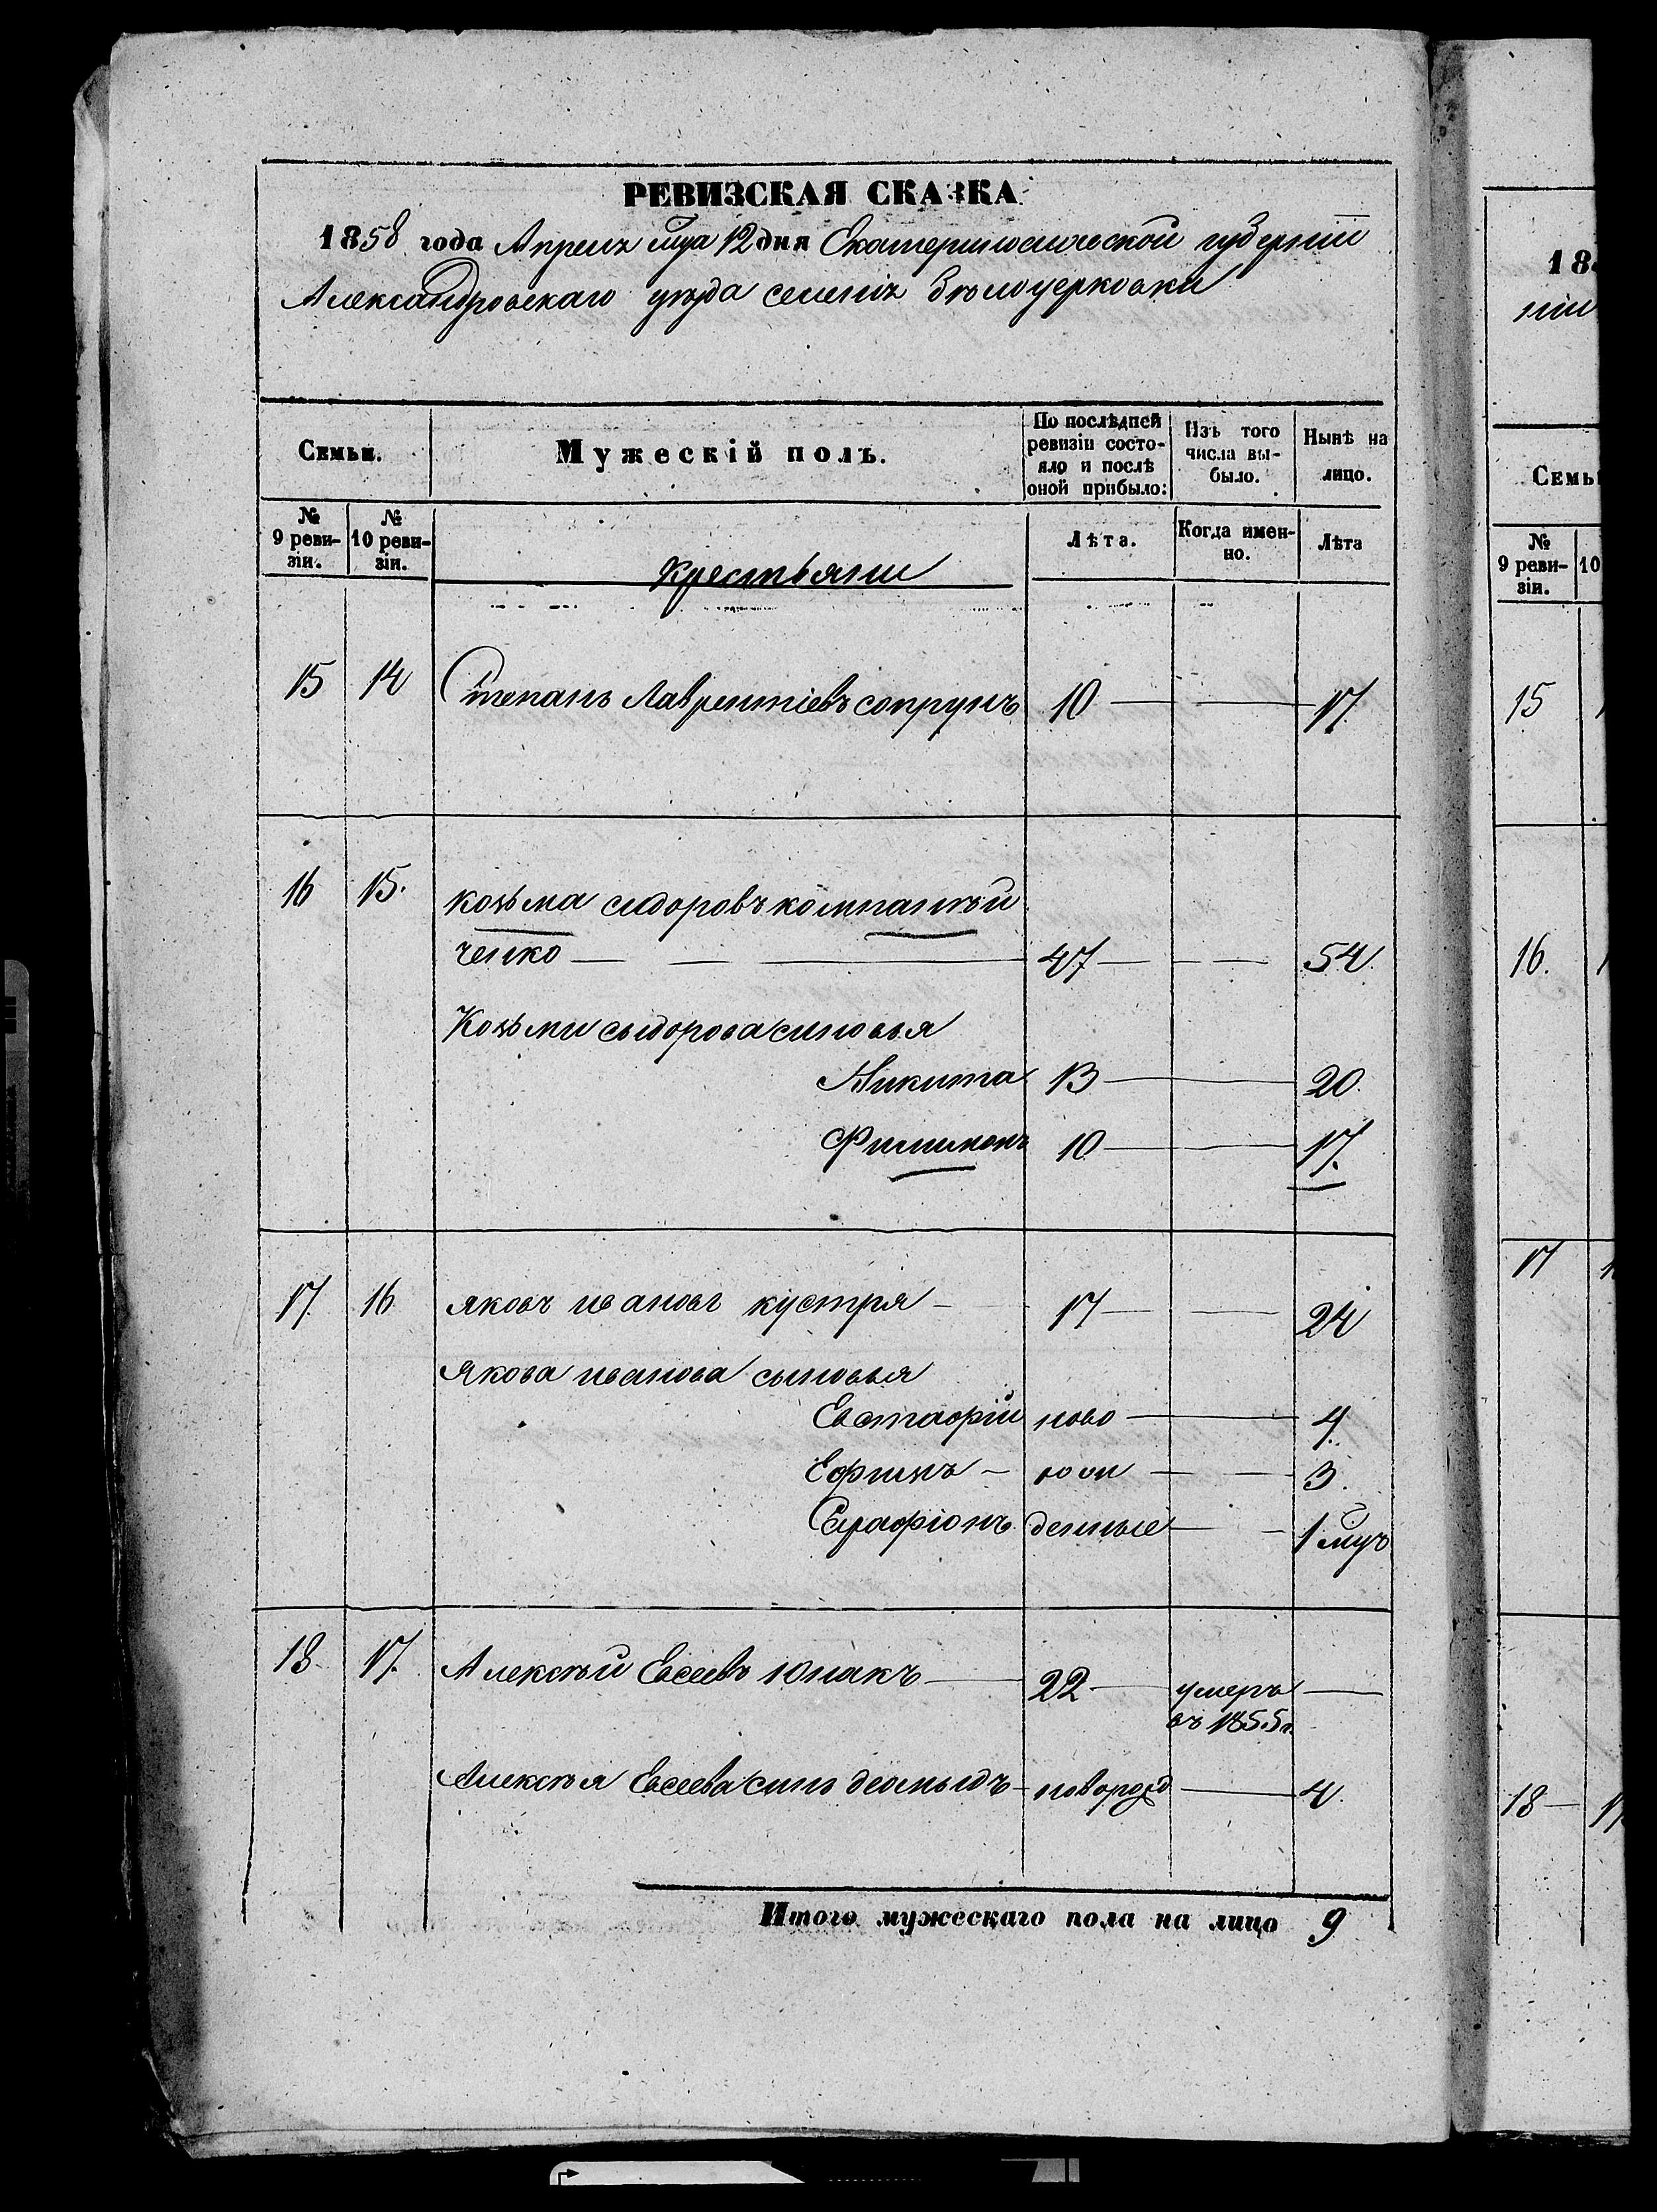 РЕВИЗСКАЯ СКАЗКА
1858 года Апреля мца 12 дня Екатеринославской губернии
Александровскаго уезда селения Белоцерковки
Семьи.
Мужескій полъ.
По послѣдней ревизіи состо-
яло и послѣ
оной прибыло:
Изъ того
числа вы-
было.
Нынѣ на
лицо.
№
9 реви-
зіи.
№
10 реви-
зіи.
Крестьяни
Лѣта.
Когда имен-
но.
Лѣта
15 14 Степанъ Лаврентіевъ сопрунъ 10 17.
16 15. козьма сидоровъ компанѣй
ченко 47 54.
Козьми сыдорова синовья
Никита 13 20.
Филимонъ 10 17.
17. 16 яковъ ивановъ кустря 17 24
Якова иванова сыновья
Евстафій ново 4.
Ефимъ рож 3.
Серафіонъ денные 1 мцъ
18. 17. Алексѣй Евсеевъ Юнакъ 22 умеръ
въ 1855 г.
Алексѣя Евсеева синъ деомидъ новорожд 4.
Итого мужескаго пола на лицо 9
18
нии
Семьи
№
9 реви-
зіи.
10
15
16.
17
18